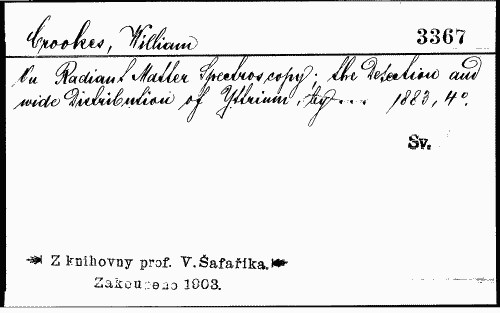 Crookes, William
3367
On Radiant Matter Spectroscopy; the Detection and
wide Distribution of Yttrium, ... 1883, 4°.
Sv.
Z knihovny prof. V. Šafaříka.
Zakoupeno 1903.